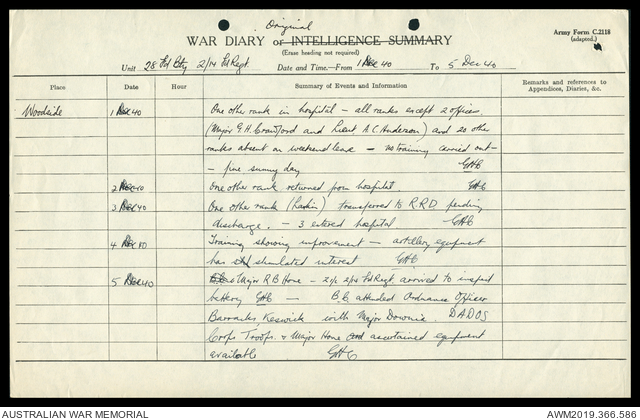 Original
WAR DIARY or INTELLIGENCE SUMMARY
(Erase heading not required)
Army Form C.2118
(adapted.)
Unit 28 Fd Bty 2/14 Fd Regt. Date and Time.—From 1 Dec 40 To 5 Dec 40
Place Date Hour Summary of Events and Information Remarks and references to Appendices, Diaries, &c.
Woodside 1 Dec 40 One other rank in hospital – all ranks except 2 officers
(Major G.H. Crawford and Lieut A C Anderson) and 20 other
ranks absent on weekend leave – no training carried out –
– fine sunny day GHC
2 Dec 40 One other rank returned from hospital. GHC
3 Dec 40 One other rank transferred to R.R.D pending
discharge. – 3 entered hospital. GHC
4 Dec 40 Training showing improvement – artillery equipment
has stimulated interest GHC
5 Dec 40 Major R B Hone – 2i/c 2/14 Fd Regt. arrived to inspect
battery GHC – B.C. attended Ordnance Officer
Barracks, Keswick with Major Downie. DADOS
Corps Troops. + Major Hone and ascertained equipment
available GHC
AUSTRALIAN WAR MEMORIAL AWM2019.366.586